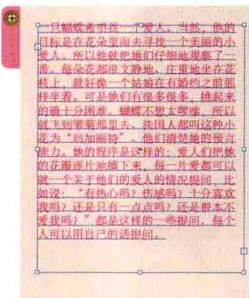 一只蝴蝶希望找一个爱人。当然，他的
目标是在花朵里面去寻找一个美丽的小
爱人。所以他就把她们仔细地观察了一
番。每朵花都很文静地、庄重地坐在花
枝上，就好像一个姑娘在有婚约之前那
样坐着。可是她们有很多很多，挑起来
的确十分困难。蝴蝶不想太啰唆，所以
就飞到雏菊那里去。法国人都叫这种小
花为“玛加丽特”，他们清楚她的预言
能力。她的程序是这样的：爱人们把她
的花瓣逐片地摘下来，每一片爱都可以
就一个关于他们的爱人的情况提问，比
如说：“有热心吗？伤感吗？十分喜欢
我吗？还是只有一点点吗？还是根本不
爱我吗？”都是这样的一些提问，每个
人可以用自己的话提问。